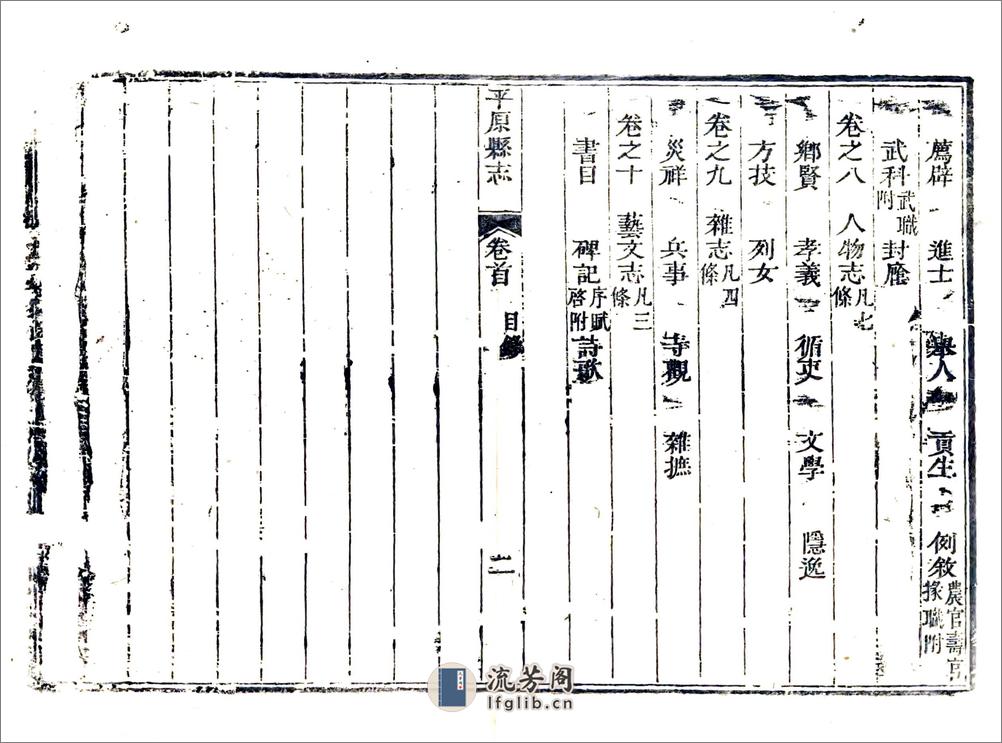 薦辟 進士 舉人 貢生 例敘農官壽官掾職附
武科武職附 封廕
卷之八 人物志凡七條
鄉賢 孝義 循吏 文學 隱逸
方技 列女
卷之九 雜志凡四條
災祥 兵事 寺觀 雜撫
卷之十 藝文志凡三條
書目 碑記序賦啓附 詩歌
平原縣志 卷首 目錄 二
流芳阁
lfglib.cn